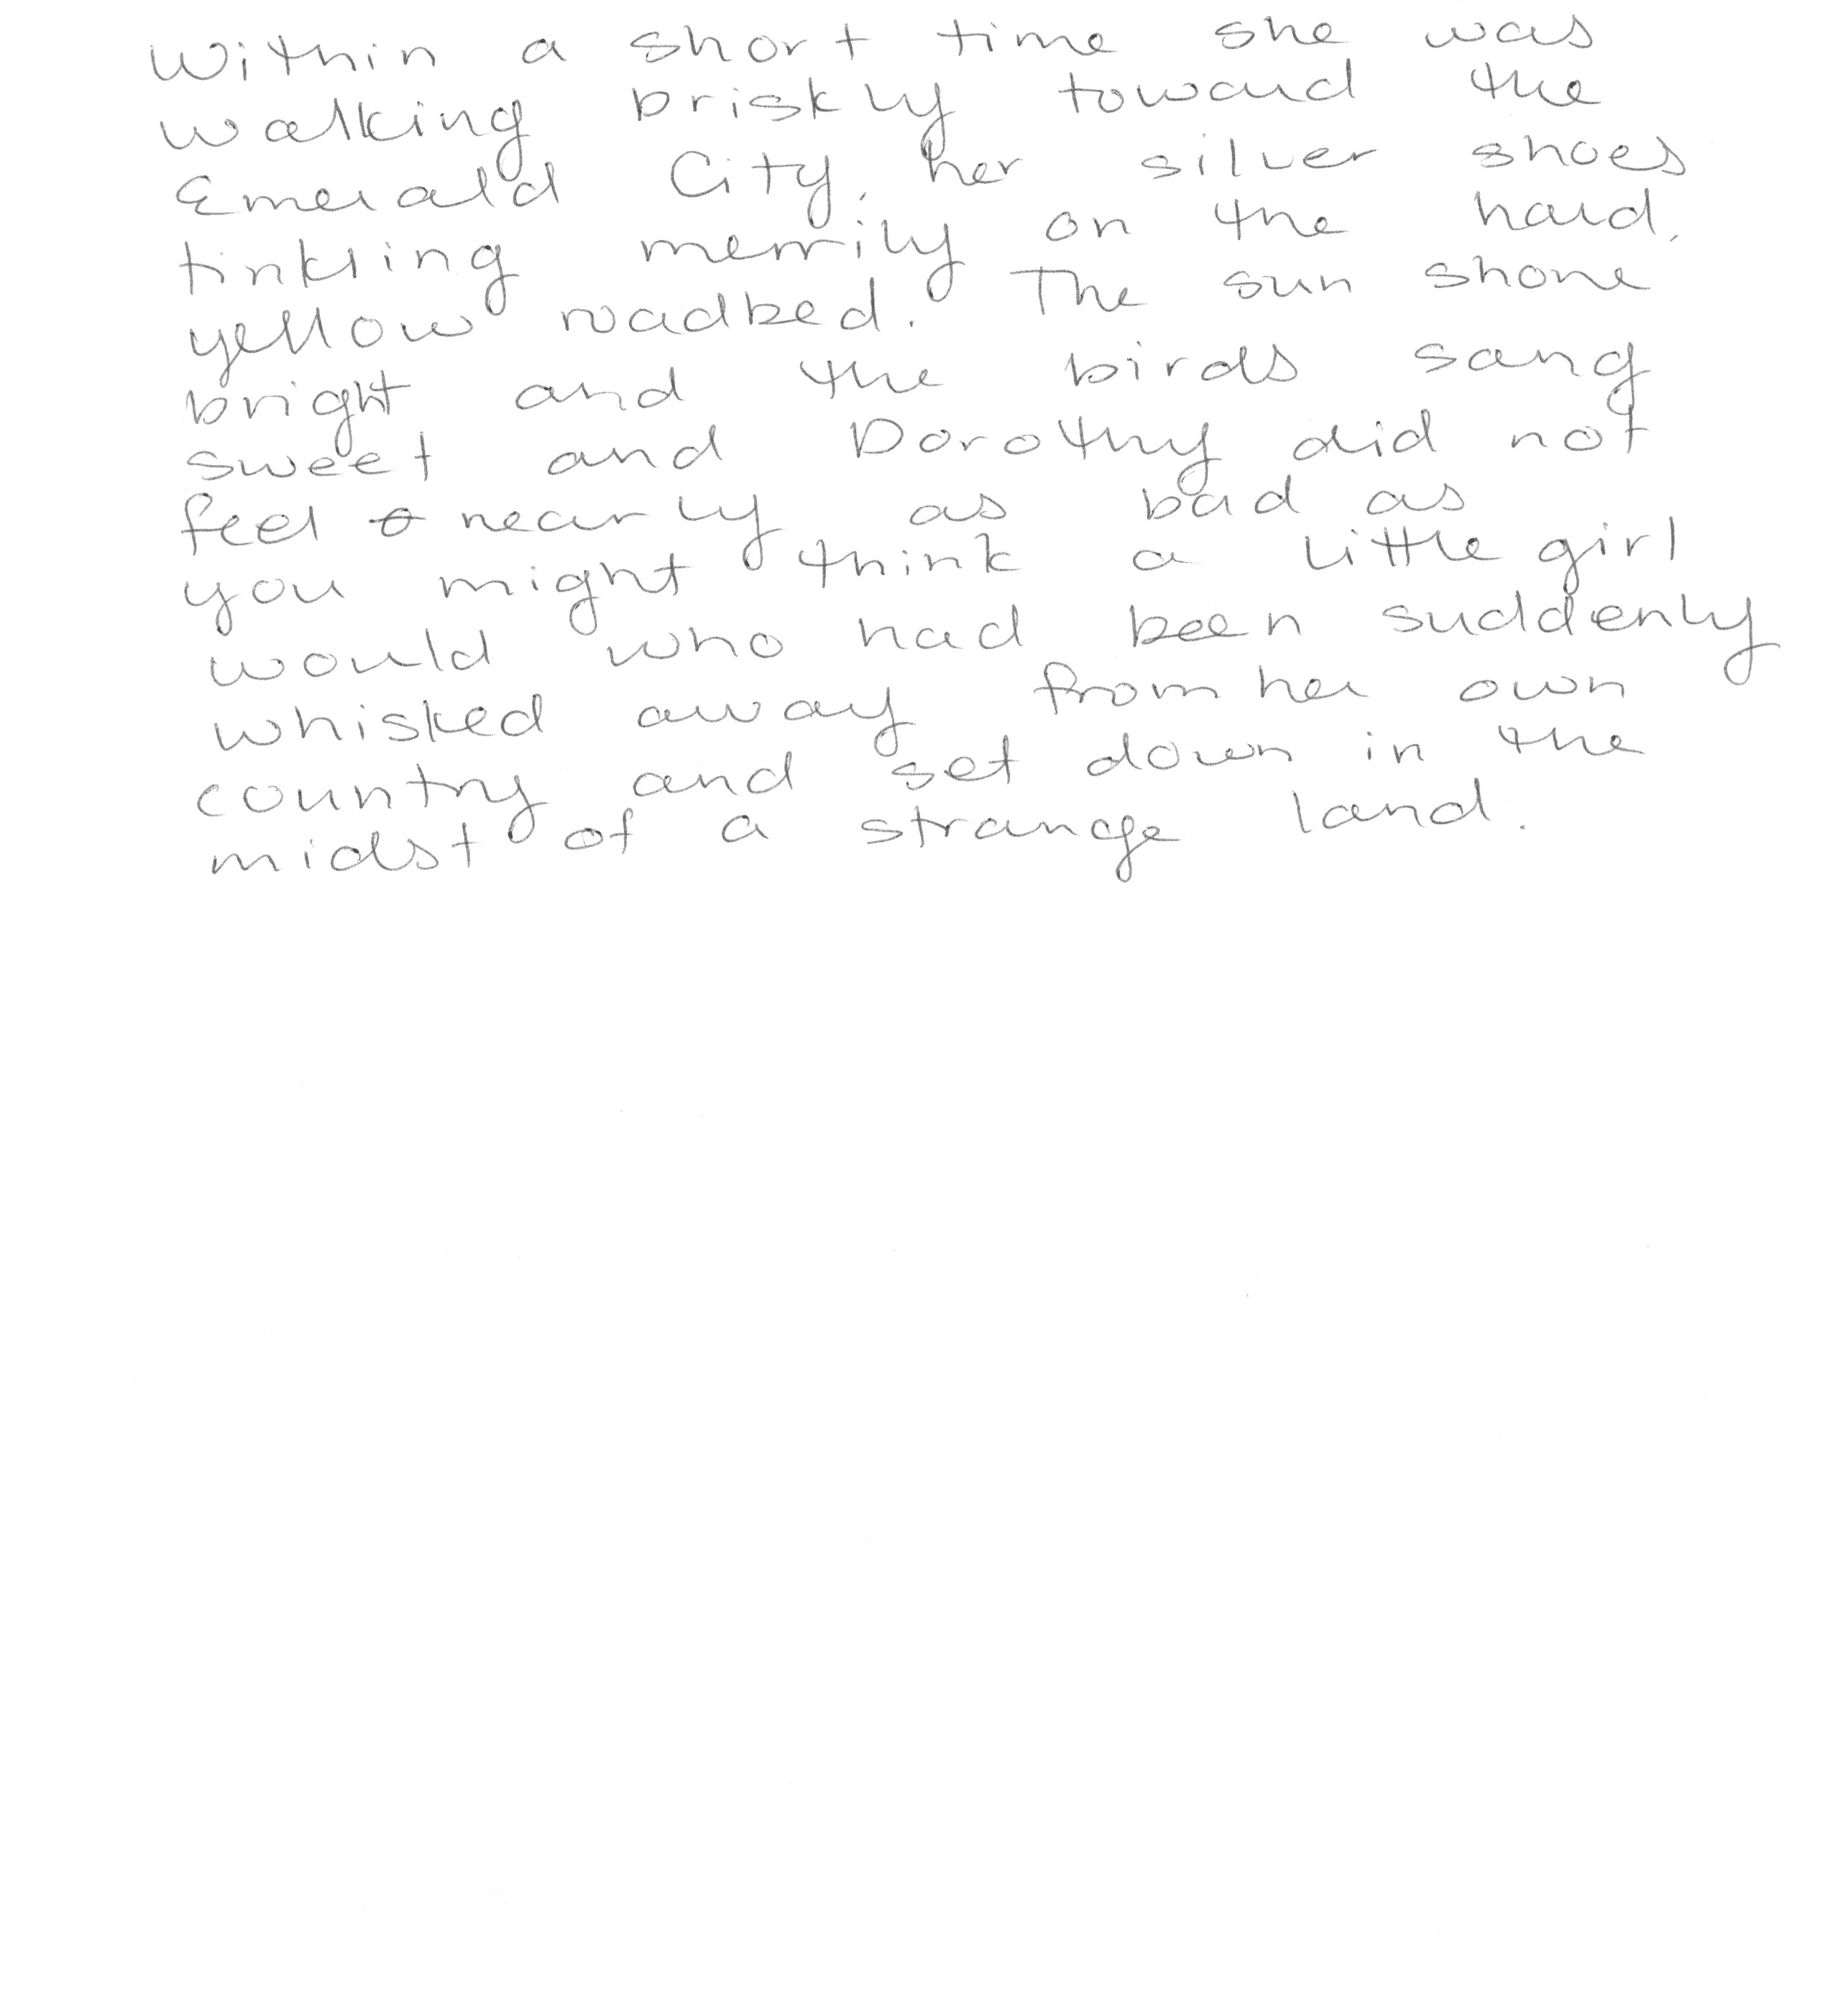 Within a short time she was
walking briskly toward the
Emerald City, her silver shoes
tinkling merrily on the hard,
yellow roadbed. The sun shone
bright and the birds sang
sweet and Dorothy did not
feel nearly as bad as
you might think a little girl
would who had been suddenly
whisked away from her own
country and set down in the
midst of a strange land.